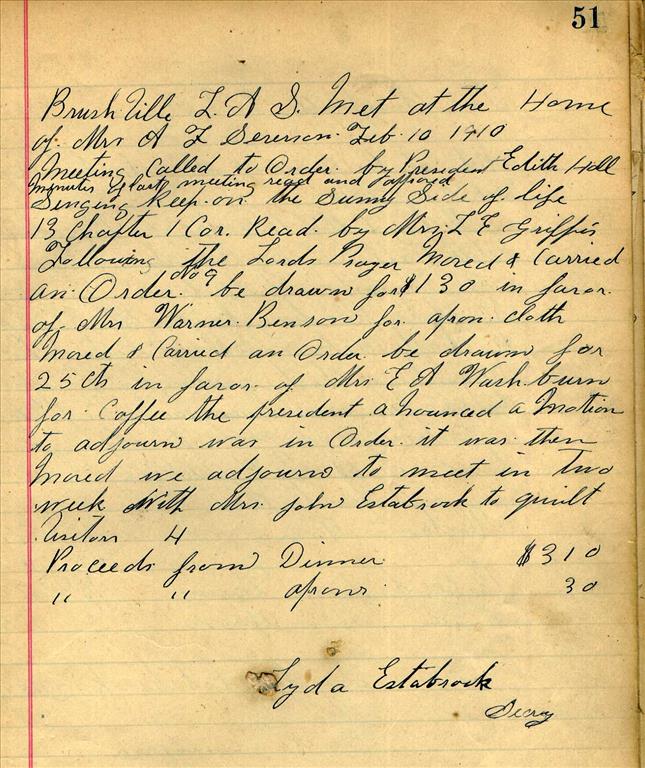 51
Brushville L. A S. Met at the Home
of Mrs A Z Severson. Feb. 10 1910
Meeting Called to Order. by President Edith Hall
Minutes of last meeting read and approved
Singing Keep. on the Sunny Side of life
13 Chapter 1 Cor. Read. by Mrs L E Griffis
Following the Lords Prayer Moved & Carried
an Order. No 9 be drawn for $1 30 in favor.
of Mrs Warner. Benson for apron cloth
Moved & Carried an Order be drawn for
25 cts in favor of Mrs E A Washburn
for Coffee the president anounced a Motion
to adjourn was in Order. it was then
Moved we adjourn to meet in two
week With Mrs. John Estabrook to quilt
Visitors 4
Proceeds from Dinner $3 10
" " aprons 30
Lyda Estabrook
Secry